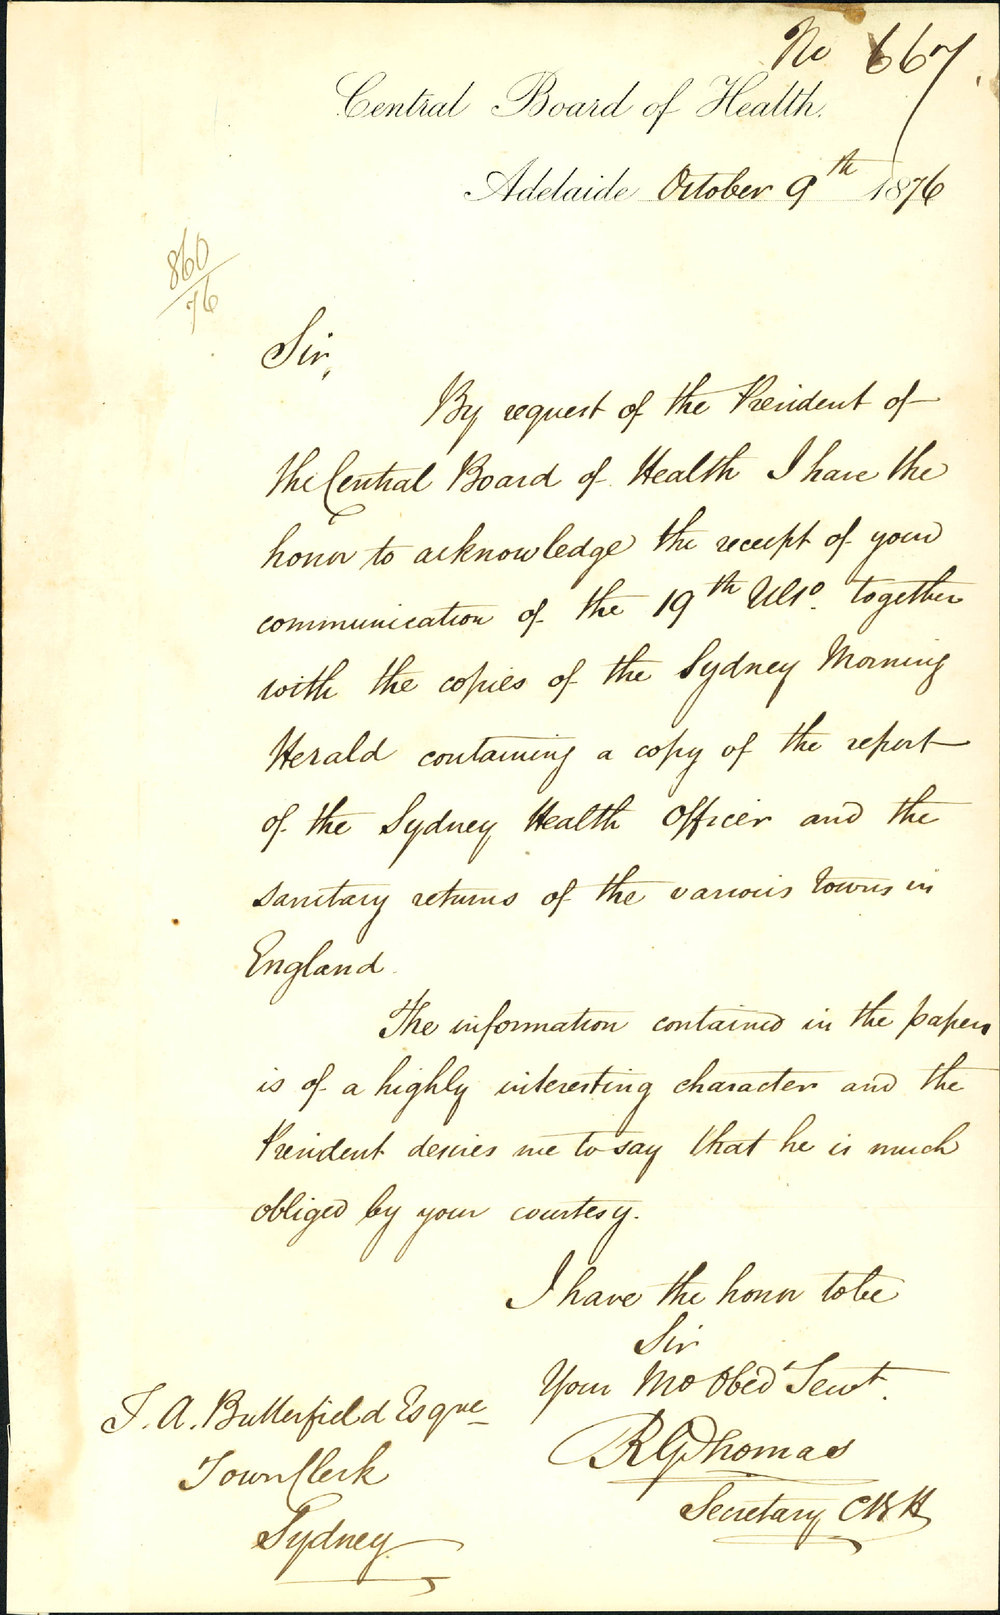 No 667.
Central Board of Health.
Adelaide October 9th 1876
860/76
Sir,
By request of the President of
the Central Board of Health I have the
honor to acknowledge the receipt of your
communication of the 19th Ulto. together
with the copies of the Sydney Morning
Herald containing a copy of the report
of the Sydney Health Officer and the
sanitary returns of the various towns in
England.
The information contained in the papers
is of a highly interesting character and the
President desires me to say that he is much
obliged by your courtesy.
I have the honor to be
Sir
Your Mo Obed Servt.
R G Thomas
Secretary CB H
J. A. Butterfield Esque
Town Clerk
Sydney